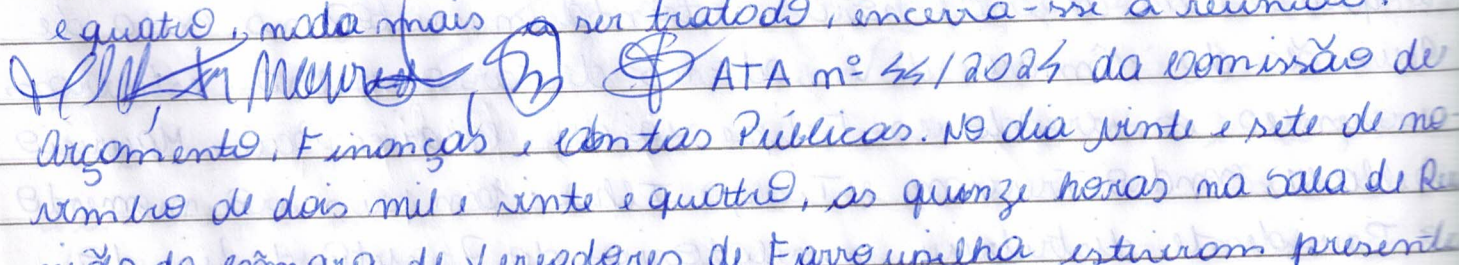 e quatro, nada mais a ser tratado, encerra-se a reunião.
ATA nº 44/2024 da comissão de
Orçamento, Finanças e Contas Públicas. No dia vinte e sete de no
vembro de dois mil e vinte e quatro, as quinze horas na sala de Re
nião da câmara de Vereadores de Farroupilha estiveram present